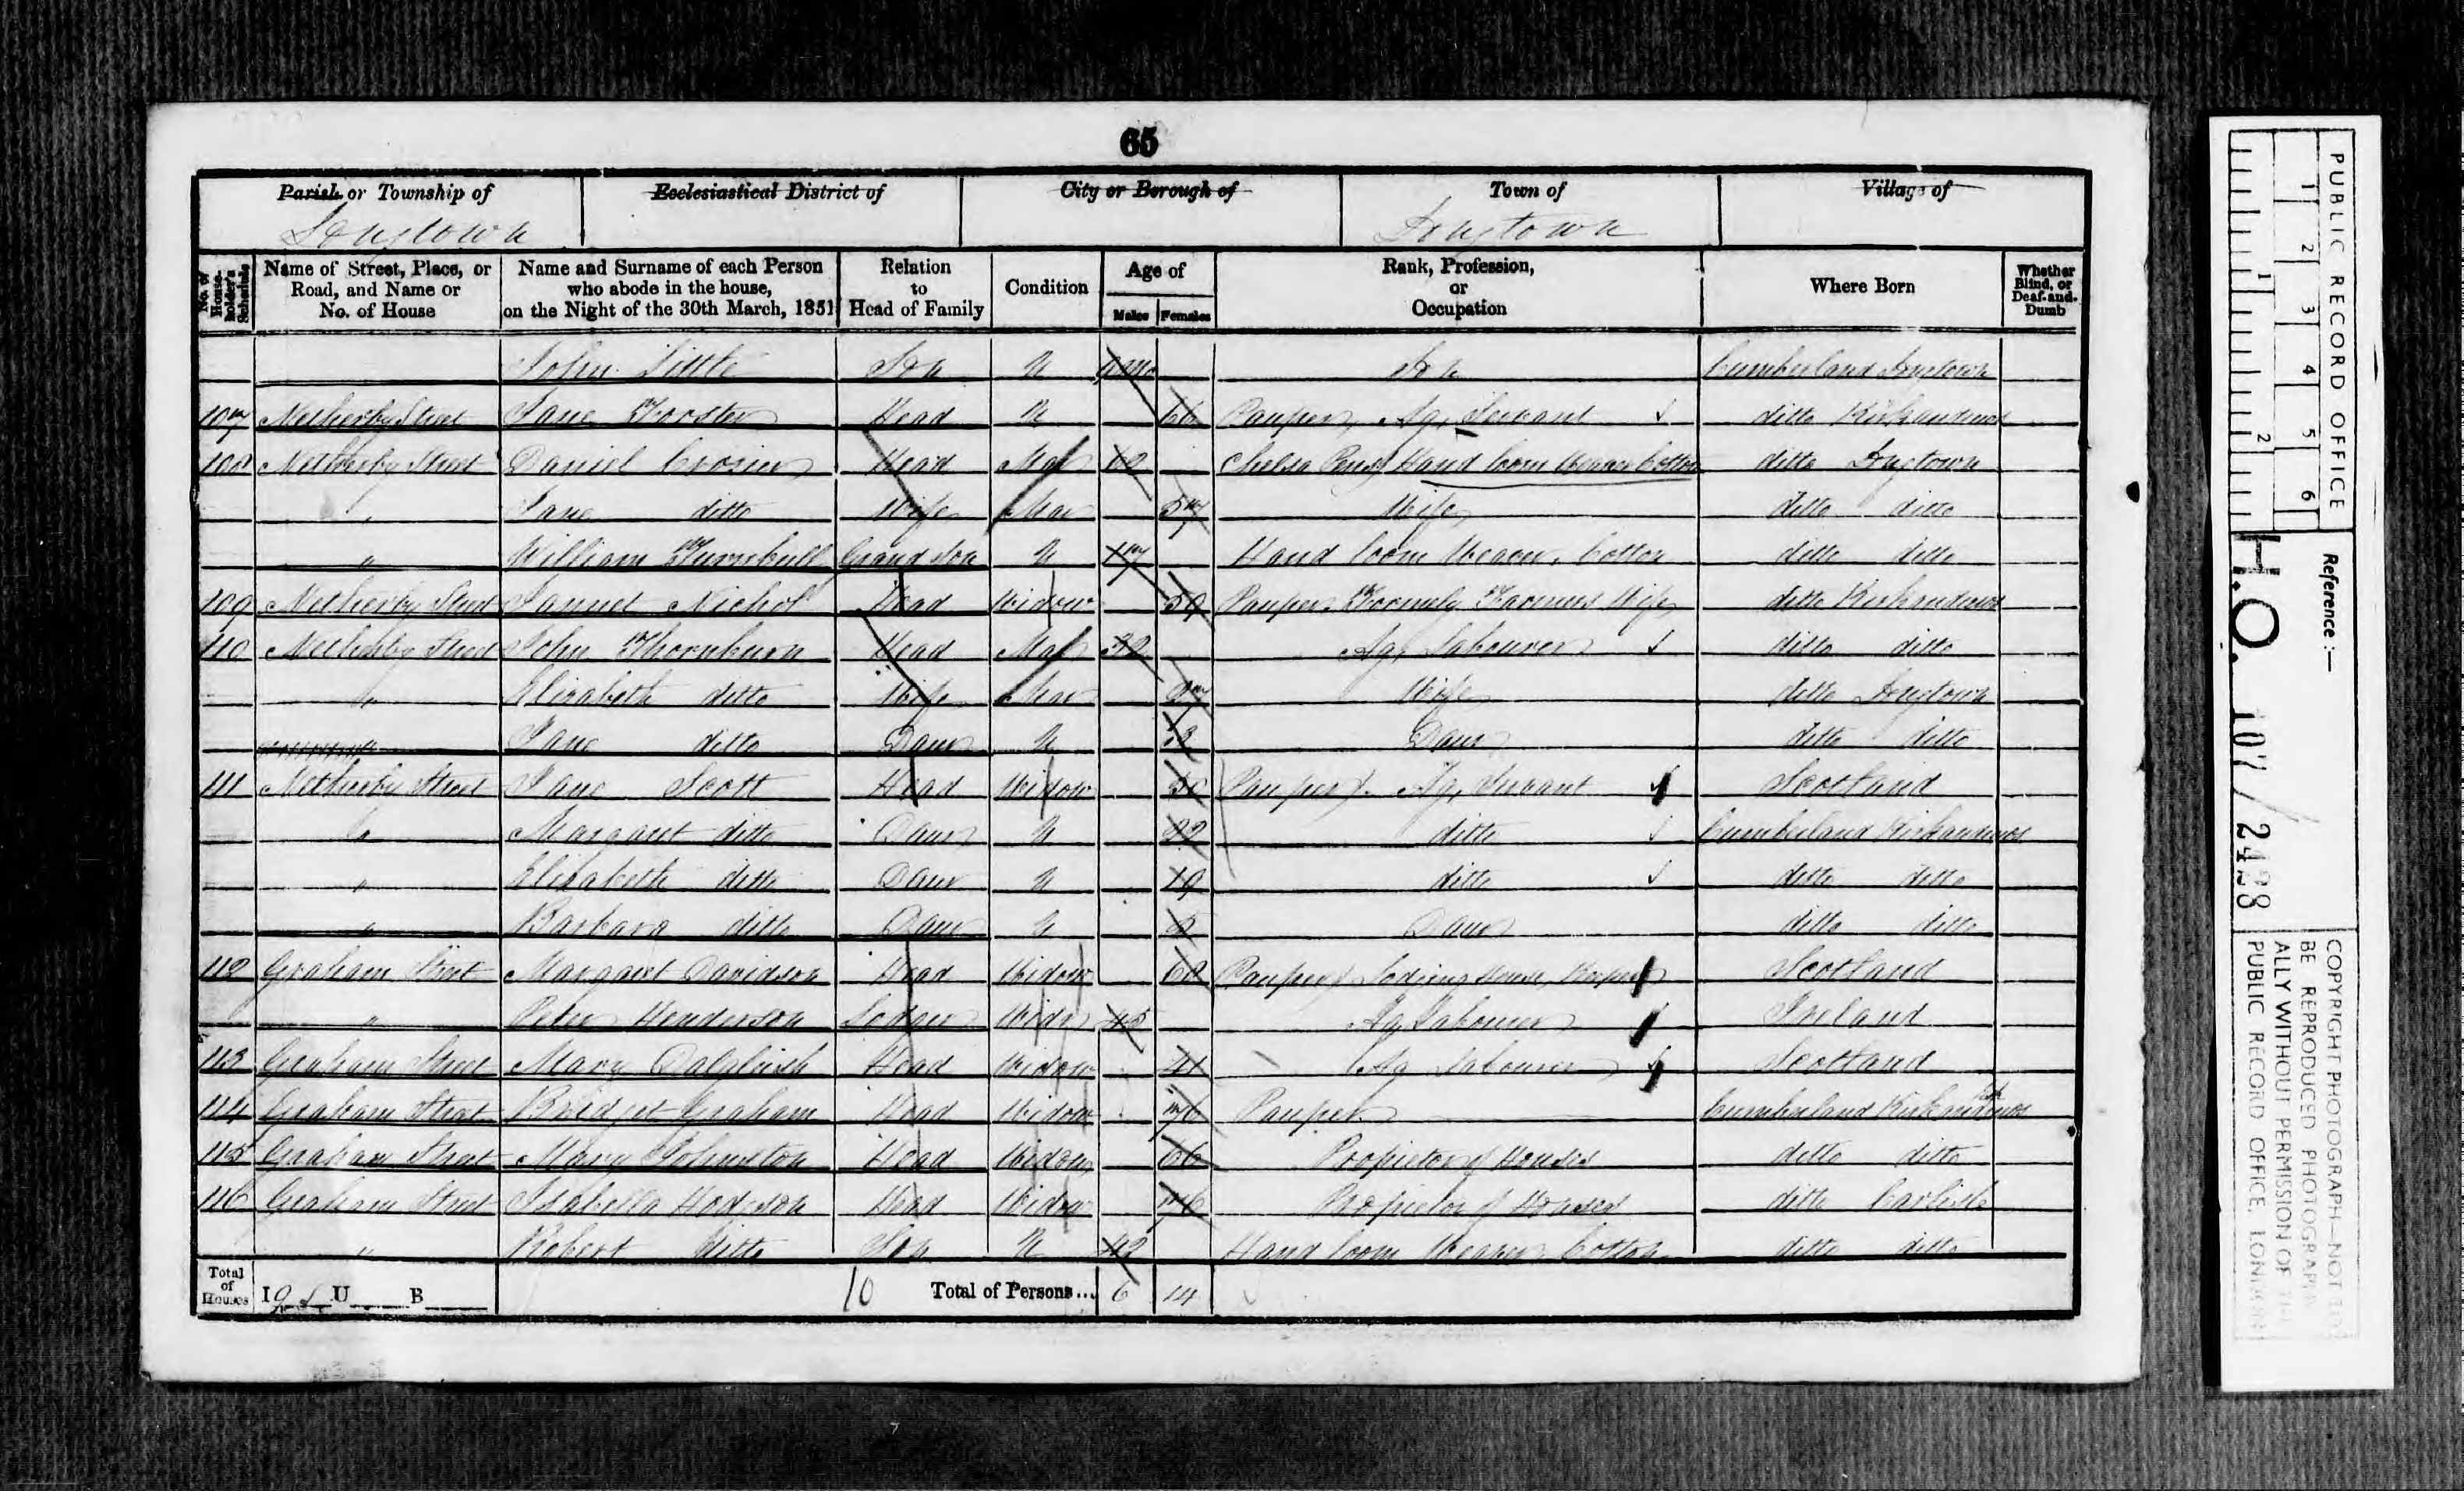 65
Parish or Township of
Longtown
Ecclesiastical District of
City or Borough of
Town of
Longtown
Village of
No. of House-holder's Schedule
Name of Street, Place, or Road, and Name or No. of House
Name and Surname of each Person who abode in the house, on the Night of the 30th March, 1851
Relation to Head of Family
Condition
Age of
Males
Females
Rank, Profession, or Occupation
Where Born
Whether Blind, or Deaf-and-Dumb
John Little Son U Son Cumberland Longtown
107 Netherby Street Jane Forster Head U 66 Pauper, Ag, Servant ditto Kirkandrews
108 Netherby Street Daniel Crozier Head Mar 62 Chelsea Pens, Hand loom Weaver Cotton ditto Longtown
" Jane ditto Wife Mar 57 Wife ditto ditto
" William Turnbull Grand son U 17 Hand loom Weaver, Cotton ditto ditto
109 Netherby Street Jannet Nichol Head Widow 59 Pauper Formerly Farmers Wife ditto Kirkandrews
110 Netherby Street John Thornburn Head Mar 32 Ag, Labourer ditto ditto
" Elizabeth ditto Wife Mar 27 Wife ditto Longtown
Jane ditto Daur U Daur ditto ditto
111 Netherby Street Jane Scott Head Widow 50 Pauper Ag, Servant Scotland
" Margaret ditto Daur U 22 ditto Cumberland Kirkandrews
" Elizabeth ditto Daur U 19 ditto ditto ditto
" Barbara ditto Daur U Daur ditto ditto
112 Graham Street Margaret Davidson Head Widow 62 Pauper Lodging House Keeper Scotland
" Peter Henderson Lodger Widr 45 Ag Labourer Ireland
113 Graham Street Mary Dalgliesh Head Widow 41 Ag Labourer Scotland
114 Graham Street Bridget Graham Head Widow 76 Pauper Cumberland Kirkandrews
115 Graham Street Mary Johnston Head Widow 66 Propietor of Houses ditto ditto
116 Graham Street Isabella Hodgson Head Widow 76 Propietor of Houses ditto Carlisle
" Robert ditto Son U 42 Hand loom Weaver, Cotton ditto ditto
Total of Houses I U B 10 Total of Persons... 6 14
PUBLIC RECORD OFFICE
1 2 3 4 5 6
1 2
Reference :-
H.O. 107/2428
COPYRIGHT PHOTOGRAPH-NOT TO
BE REPRODUCED PHOTOGRAPHIC-
ALLY WITHOUT PERMISSION OF THE
PUBLIC RECORD OFFICE, LONDON